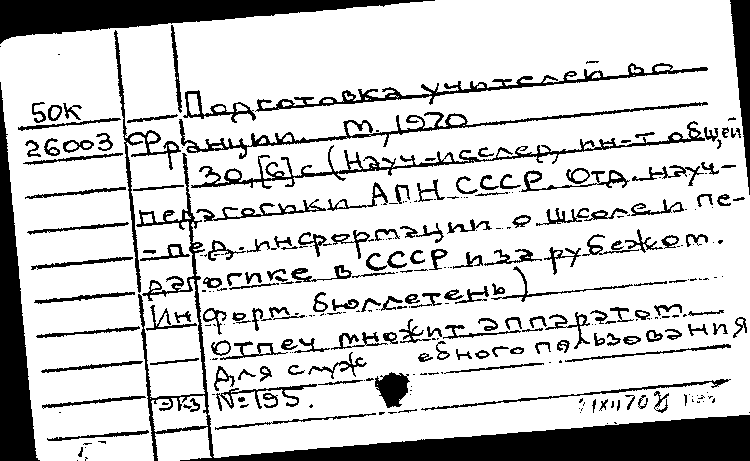 50К Подготовка учителей во
26003 Франции. М., 1970
30, [6] с (Науч-исслед. ин-т общей
педагогики АПН СССР. Отд. науч-
-пед. информации о школе и пе-
дагогике в СССР и за рубежом.
Информ. бюллетень)
Отпеч. множит. аппаратом.
Для служебного пользования
экз. №195.